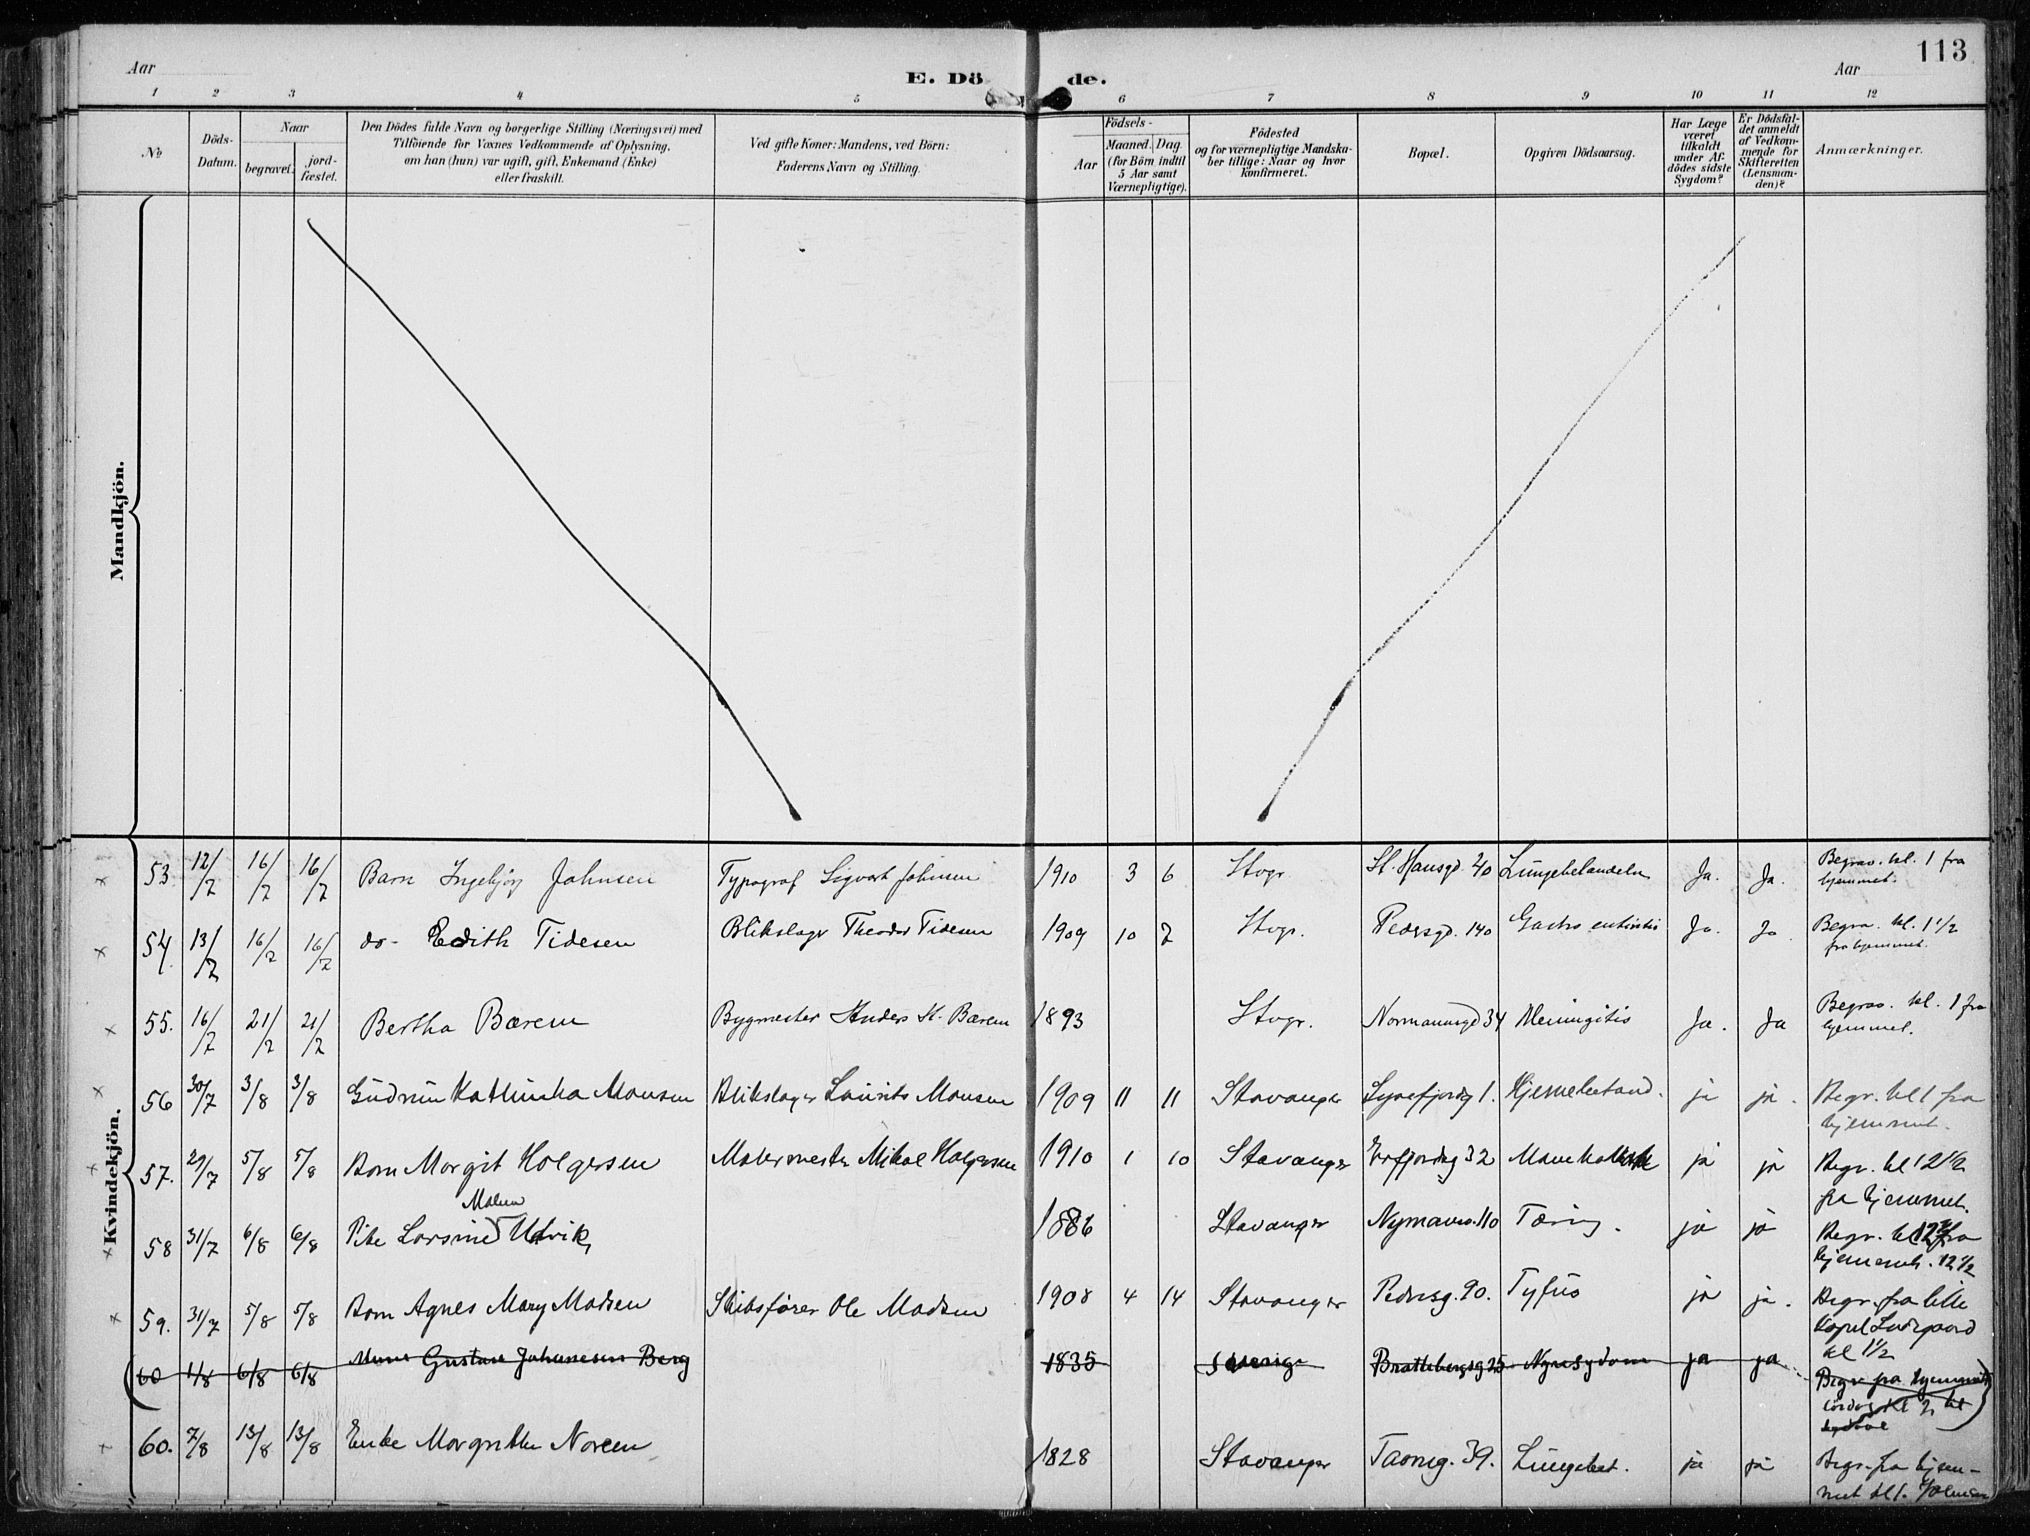 113
Aar
E. Dö de.
Aar
1 2 3 4 5 6 7 8 9 10 11 12
No
Döds-
Datum.
Naar
begravet.
jord-
fæstet.
Den Dödes fulde Navn og borgerlige Stilling (Næringsvei) med
Tilföiende for Voxnes Vedkommende af Oplysning,
om han (hun) var ugift, gift, Enkemand (Enke)
eller fraskilt.
Ved gifte Koner: Mandens, ved Börn:
Faderens Navn og Stilling.
Födsels-
Aar
Maaned. Dag
(for Börn indtil
5 Aar samt
Værnepligtige).
Födested
og for værnepligtige Mandska-
ber tillige: Naar og hvor
konfirmeret.
Bopæl.
Opgiven Dödsaarsag.
Har Læge
været
tilkaldt
under Af-
dödes sidste
Sygdom?
Er Dödsfal-
det anmeldt
af Vedkom-
mende for
Skifteretten
(Lensman-
den)?
Anmærkninger.
Mandkjön.
Kvindekjön.
53 12/7 16/7 16/7 Barn Ingebjörg Johnsen Typograf Sigvart Johnsen 1910 3 6 Stvgr. St. Hansgd. 40 Lungebetændelse Ja. Ja. Begrav. kl. 1 fra
hjemmet.
54. 13/7 16/7 16/7 do- Edith Tidesen Blikslager Theodor Tidesen 1909 10 7 Stvgr. Pedersgd. 140 Gastro enteritis Ja. Ja Begra. kl. 1 1/2
fra hjemmet.
55. 16/7 21/7 21/7 Bertha Bærem Bygmester Anders H. Bærem 1893 Stvgr. Normannsgd 34 Meningitis Ja. Ja Begrav. kl. 1 fra
hjemmet.
56 30/7 3/8 3/8 Gudrun Kathinka Monsen Blikslager Laurits Monsen 1909 11 11 Stavanger Lysefjordg 1. Hjernebetænd. ja ja. Begr. kl 1 fra
hjemmet.
57. 29/7 5/8 5/8 Barn Margit Holgersen Malermester Mikal Holgersen 1910 1 10 Stavanger Erfjordsg 32 ja ja Begr. kl 12 1/2
fra hjemmet.
Malene
58 31/7 6/8 6/8 Pike Larsine Utvik 1886 Stavanger 110 Tæring. ja ja Begr. kl 12 1/2 fra
hjemmet. 12 1/2
59. 31/7 5/8 5/8 Barn Agnes Mary Madsen Skibsfører Ole Madsen 1908 4 14 Stavanger Pedersg. 90. Tyfus ja ja. Begr. fra lille
Kapel Lagaard
kl 1 1/2
60 1/8 6/8 6/8 Gustava Johannesen Berg 1835 Sverige Brattebergsg 25 Nyresygdom ja ja Begr fra hjemmet
60. 7/8 13/8 13/8 Enke Margrethe Noreen 1828 Stavanger 39. Lungebet. ja ja Begr. fra hjem-
met kl 1.